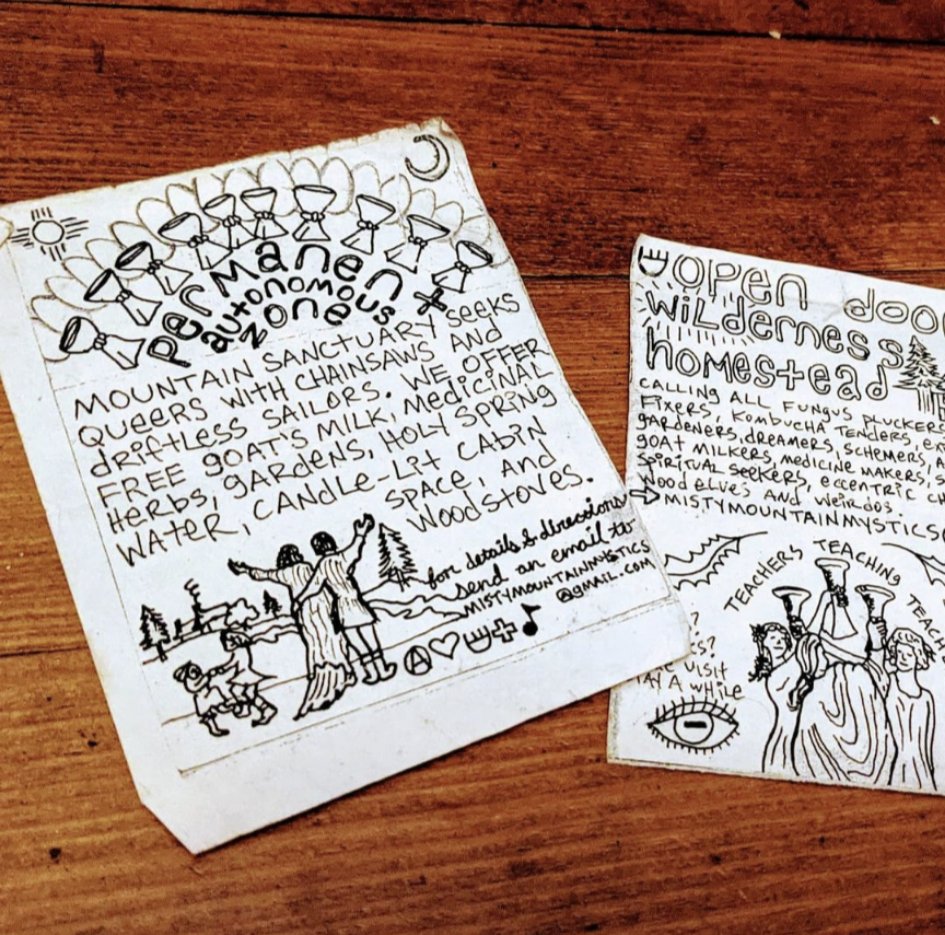 permanent
autonomous
zone
MOUNTAIN SANCTUARY SEEKS
QUEERS WITH CHAINSAWS AND
driftless SAILORS. WE OFFER
FREE gOAT'S MILK, MEdiCiNAL
HERbS, gARDENS, HOLY SPRiNg
WATER, CANdLE-LiT CABiN
SPACE, ANd
WOOdSTOVES.
for details & directions
send an email to
MISTYMOUNTAINMYSTICS
@gMAiL.COM
OPEN
WiLdERNESS
homestead
CALLING ALL FUNgUS PLUCKERS
FiXERS, KOMbUCHA TENDERS,
gARdENERS, dREAMERS, SCHEMERS,
gOAT MiLKERS, MEdiCiNE MAKERS,
SPiRiTUAL SEEKERS, ECCENTRiC
WOOd ELVES ANd WEiRdOS.
MISTYMOUNTAINMYSTICS
TEACHERS TEACHING
ViSiT
A WHiLE